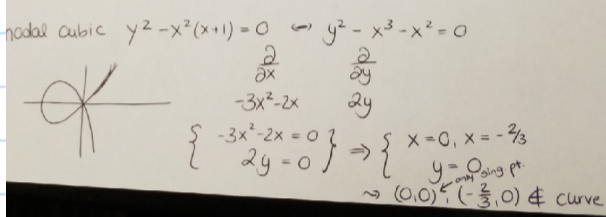 nodal cubic y² - x²(x+1) = 0 ⟺ y² - x³ - x² = 0
∂/∂x ∂/∂y
-3x²-2x 2y
{ -3x²-2x = 0 } ⇒ { x = 0, x = -2/3
2y = 0 y = 0
only sing pt.
⇝ (0,0), (-2/3, 0) ∉ curve